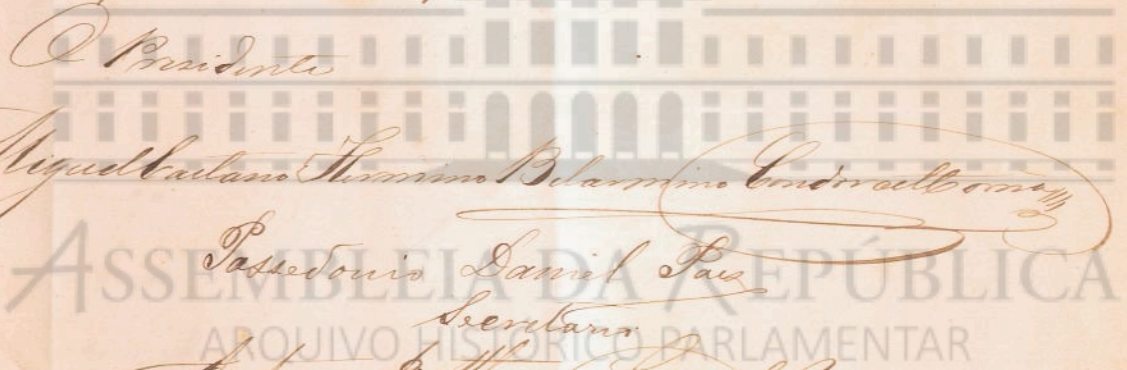 O Presidente
Miguel Caetano Hermino Belarmino
Possedonio Daniel Paes
Secretario
ASSEMBLEIA DA REPÚBLICA
ARQUIVO HISTÓRICO PARLAMENTAR